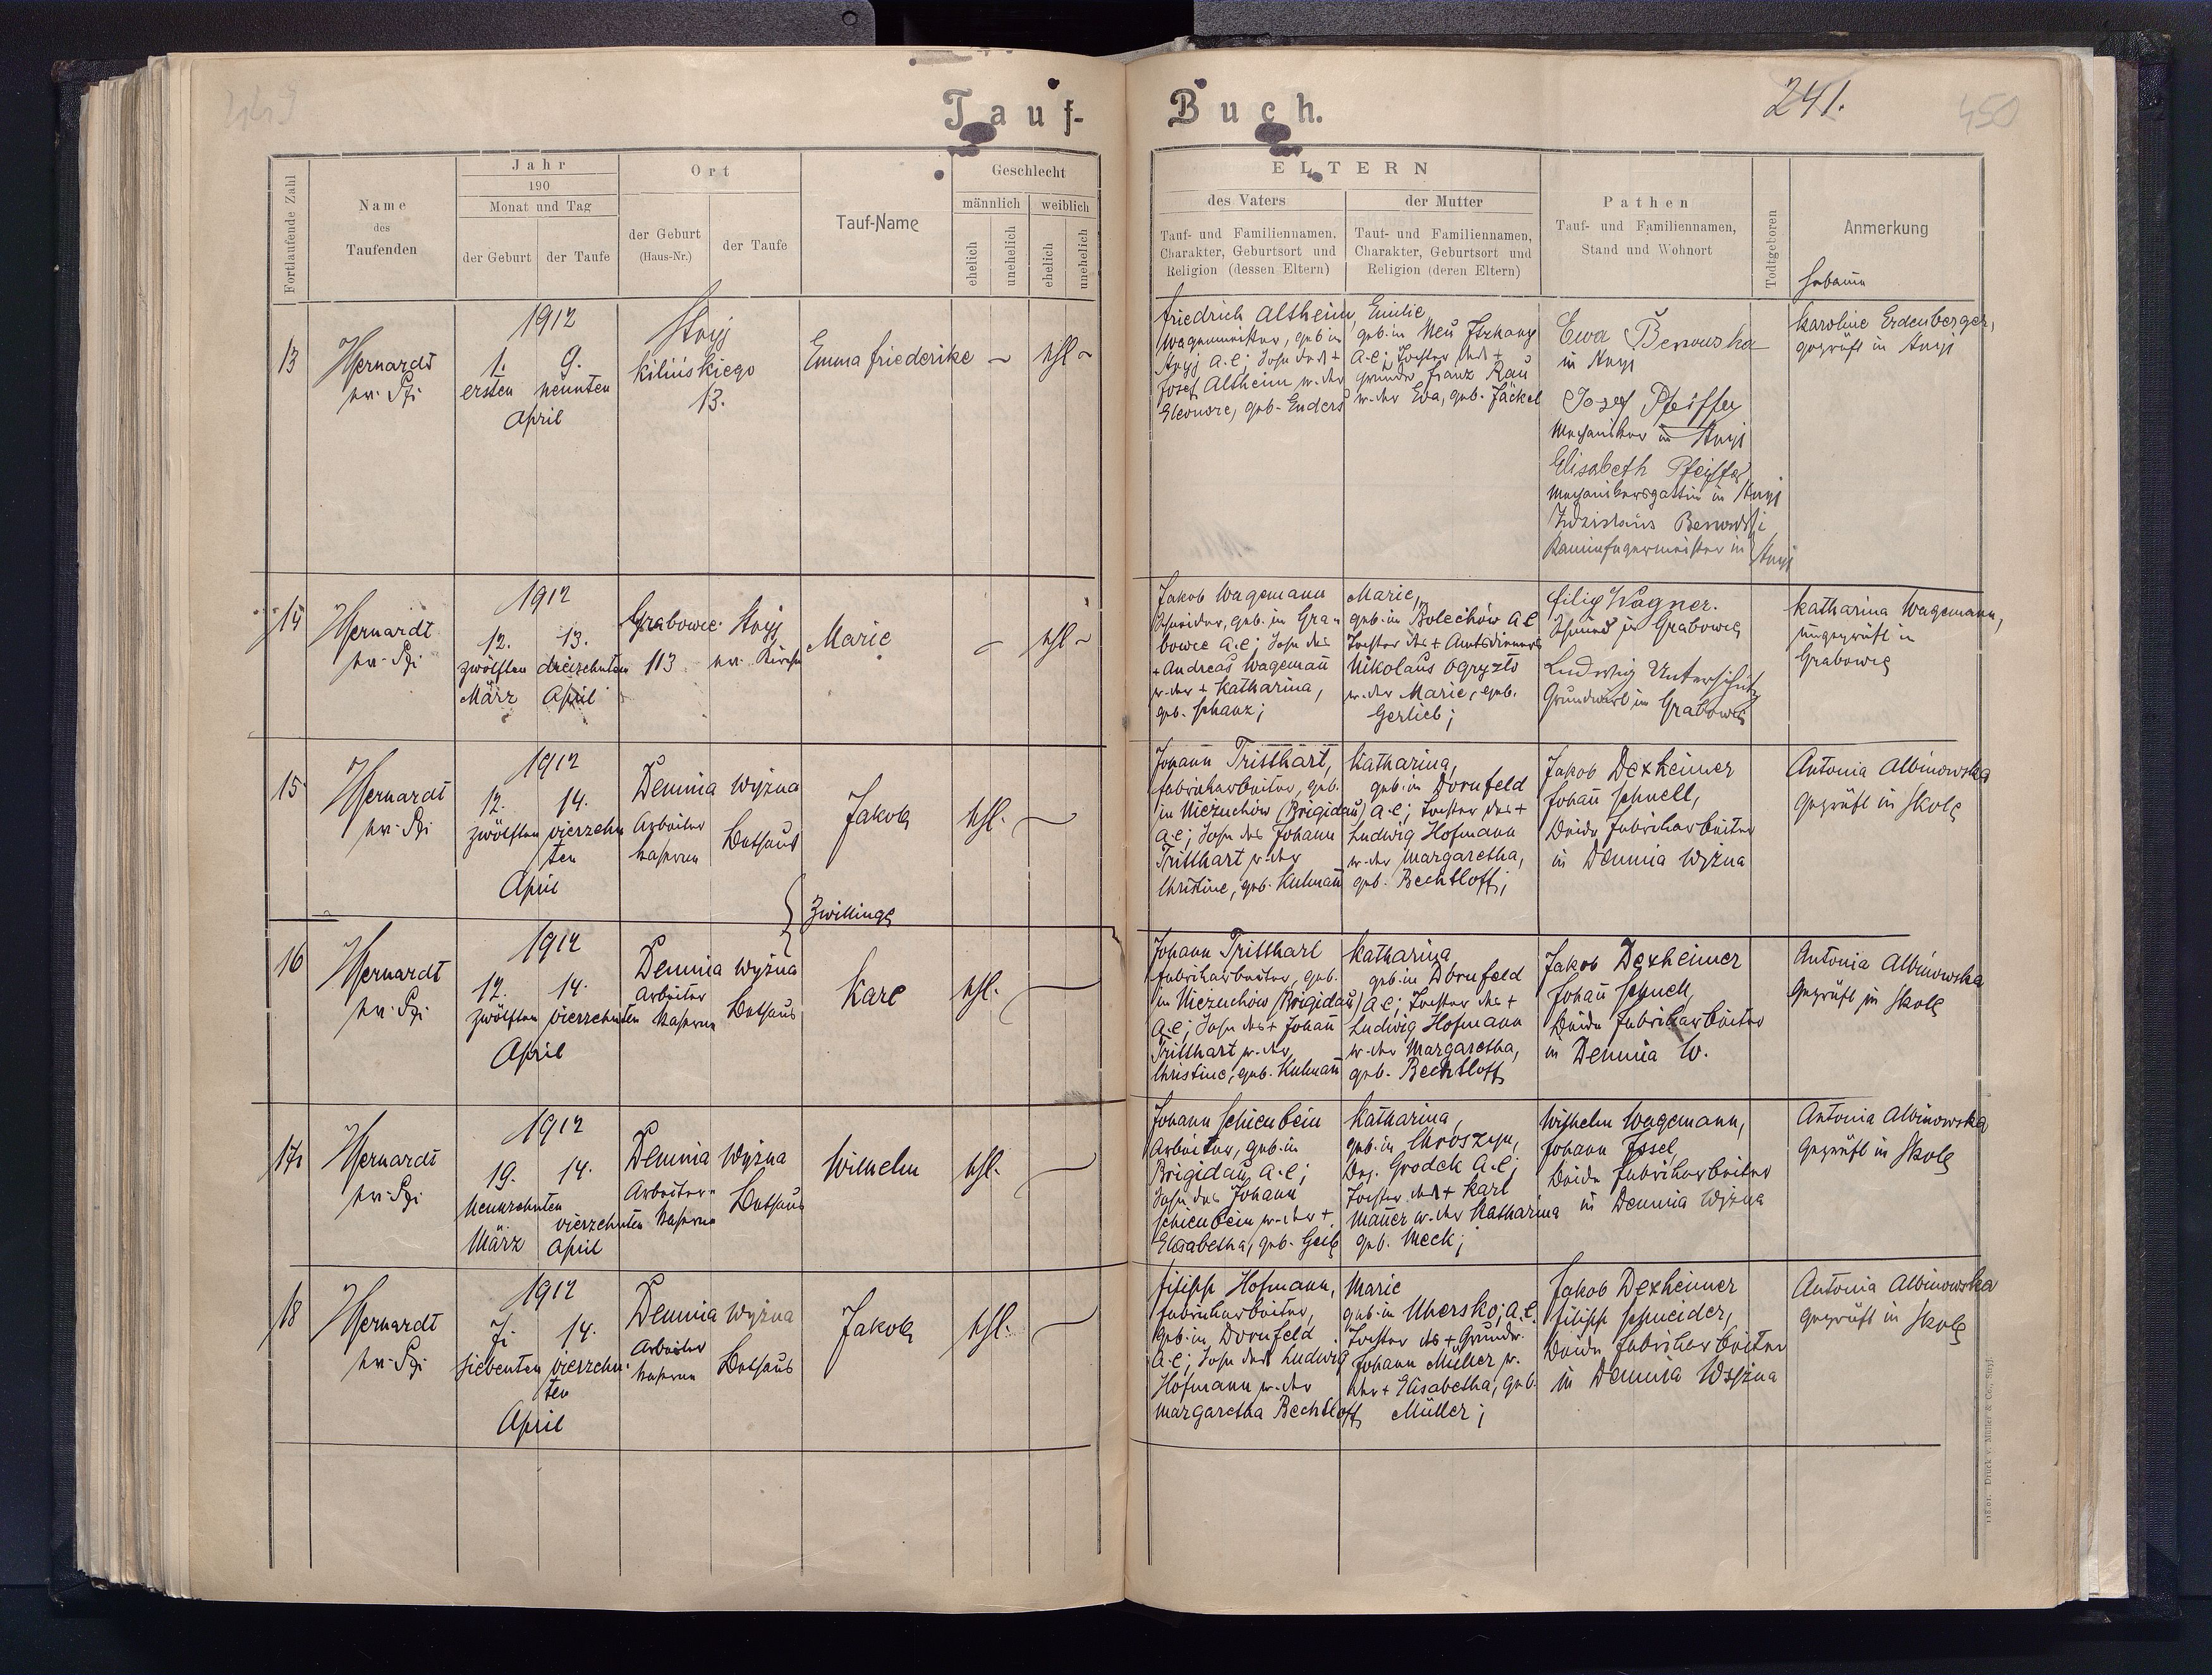 Tauf-Buch.
241.
450
449
Fortlaufende Zahl
Name
des
Taufenden
Jahr
190
Monat und Tag
der Geburt
der Taufe
Ort
der Geburt
(Haus-Nr.)
der Taufe
Tauf-Name
Geschlecht
männlich
weiblich
ehelich
unehelich
ehelich
unehelich
ELTERN
des Vaters
Tauf- und Familiennamen,
Charakter, Geburtsort und
Religion (dessen Eltern)
der Mutter
Tauf- und Familiennamen,
Charakter, Geburtsort und
Religion (deren Eltern)
Pathen
Tauf- und Familiennamen,
Stand und Wohnort
Todtgeboren
Anmerkung
Hebamme
13
Hernardt
1912
1. 9.
ersten neunten
April
Stryj
Kilińskiego
13.
Emma Friederike
ehl
Friedrich Altheim,
Wagenmeister, geb. in
Stryj A.C; Sohn des +
Josef Altheim u. der
Eleonore, geb. Enders
Emilie
geb. in Neu
A.C; Tochter des +
Grundw. Franz Rau
u. der Eva, geb. Jäckel
Ewa Berowska
in Stryj
Josef Pfeiffer
Mechaniker in Stryj
Elisabeth Pfeiffer
Mechanikersgattin in Stryj
Kaminfegermeister in Stryj
Karoline Erdenberger,
geprüft in Stryj
14
Hernardt
1912
12. 13.
zwölften dreizehnten
März April
Grabowce
113
Stryj
ev. Kirche
Marie
ehl
Jakob Wagemann
Schneider, geb. in Gra-
bowce A.C; Sohn des
+ Andreas Wagemann
u. der + Katharina,
geb. Schanz;
Marie,
geb. in Bolechów A C
Tochter des + Amtsdieners
Nikolaus Ogryzło
u. der Marie, geb.
Gerlieb;
Filip Wagner.
Schmied in Grabowce
Ludwig Unterschütz
Grundwirt in Grabowce
Katharina Wagemann,
ungeprüft in
Grabowce
15
Hernardt
1912
12. 14.
zwölften vierzehn
ten
April
Demnia Wyżna
Arbeiter
kaserne
Bethaus
Jakob
ehl.
Johann Tritthart,
Fabrikarbeiter, geb.
in Niezuchów (Brigidau)
A.C; Sohn des Johann
Tritthart u. der
Christine, geb. Kulmann
Katharina,
geb. in Dornfeld
A.C; Tochter des +
Ludwig Hofmann
u. der Margaretha,
geb. Bechtloff;
Jakob Dexheimer
Johann Schnell,
Beide Fabrikarbeiter
in Demnia Wyżna
Antonia Albinowska
geprüft in Skole
Zwillinge
16
Hernardt
1912
12. 14.
zwölften vierzehnten
April
Demnia Wyżna
Arbeiter
kaserne
Bethaus
Karl
ehl.
Johann Tritthart
Fabrikarbeiter, geb.
in Niezuchów (Brigidau)
A.C; Sohn des + Johann
Tritthart u. der
Christine, geb. Kulmann
Katharina
geb. in Dornfeld
A C; Tochter des +
Ludwig Hofmann
u. der Margaretha,
geb. Bechtloff
Jakob Dexheimer
Johann Schnell,
Beide Fabrikarbeiter
in Demnia W.
Antonia Albinowska
geprüft in Skole
17
Hernardt
1912
19. 14.
neunzehnten
vierzehnten
März April
Demnia Wyżna
Arbeiter-
kaserne
Bethaus
Wilhelm
ehl.
Johann Schienbein
Arbeiter, geb. in
Brigidau A.C;
Sohn des Johann
Schienbein u. der +
Elisabetha, geb. Geib
Katharina,
geb. in Chroszyn,
Bez. Grodek A.C;
Tochter des + Karl
Mauer u. der Katharina
geb. Meck;
Wilhelm Wagemann,
Johann Issel,
Beide Fabrikarbeiter
in Demnia Wyżna
Antonia Albinowska
geprüft in Skole
18
Hernardt
1912
7. 14.
siebenten vierzehn-
ten
April
Demnia Wyżna
Arbeiter
kaserne
Bethaus
Jakob
ehl.
Filipp Hofmann,
Fabrikarbeiter,
geb. in Dornfeld
A.C; Sohn des Ludwig
Hofmann u. der
Margaretha Bechtloff
Marie
geb. in Uhersko; A.C.
Tochter des + Grundw.
Johann Müller u.
der + Elisabetha, geb.
Müller;
Jakob Dexheimer
Filipp Schneider,
Beide Fabrikarbeiter
in Demnia Wyżna
Antonia Albinowska
geprüft in Skole
Druck v. Müller & Co., Stryj.